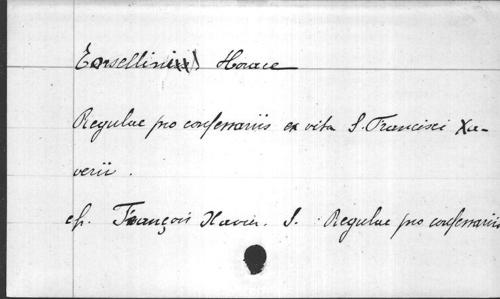 Horace
Regulae pro confessariis ex vita S. Francisci Xa-
verii.
cf. François Xavier. S. Regulae pro confessariis